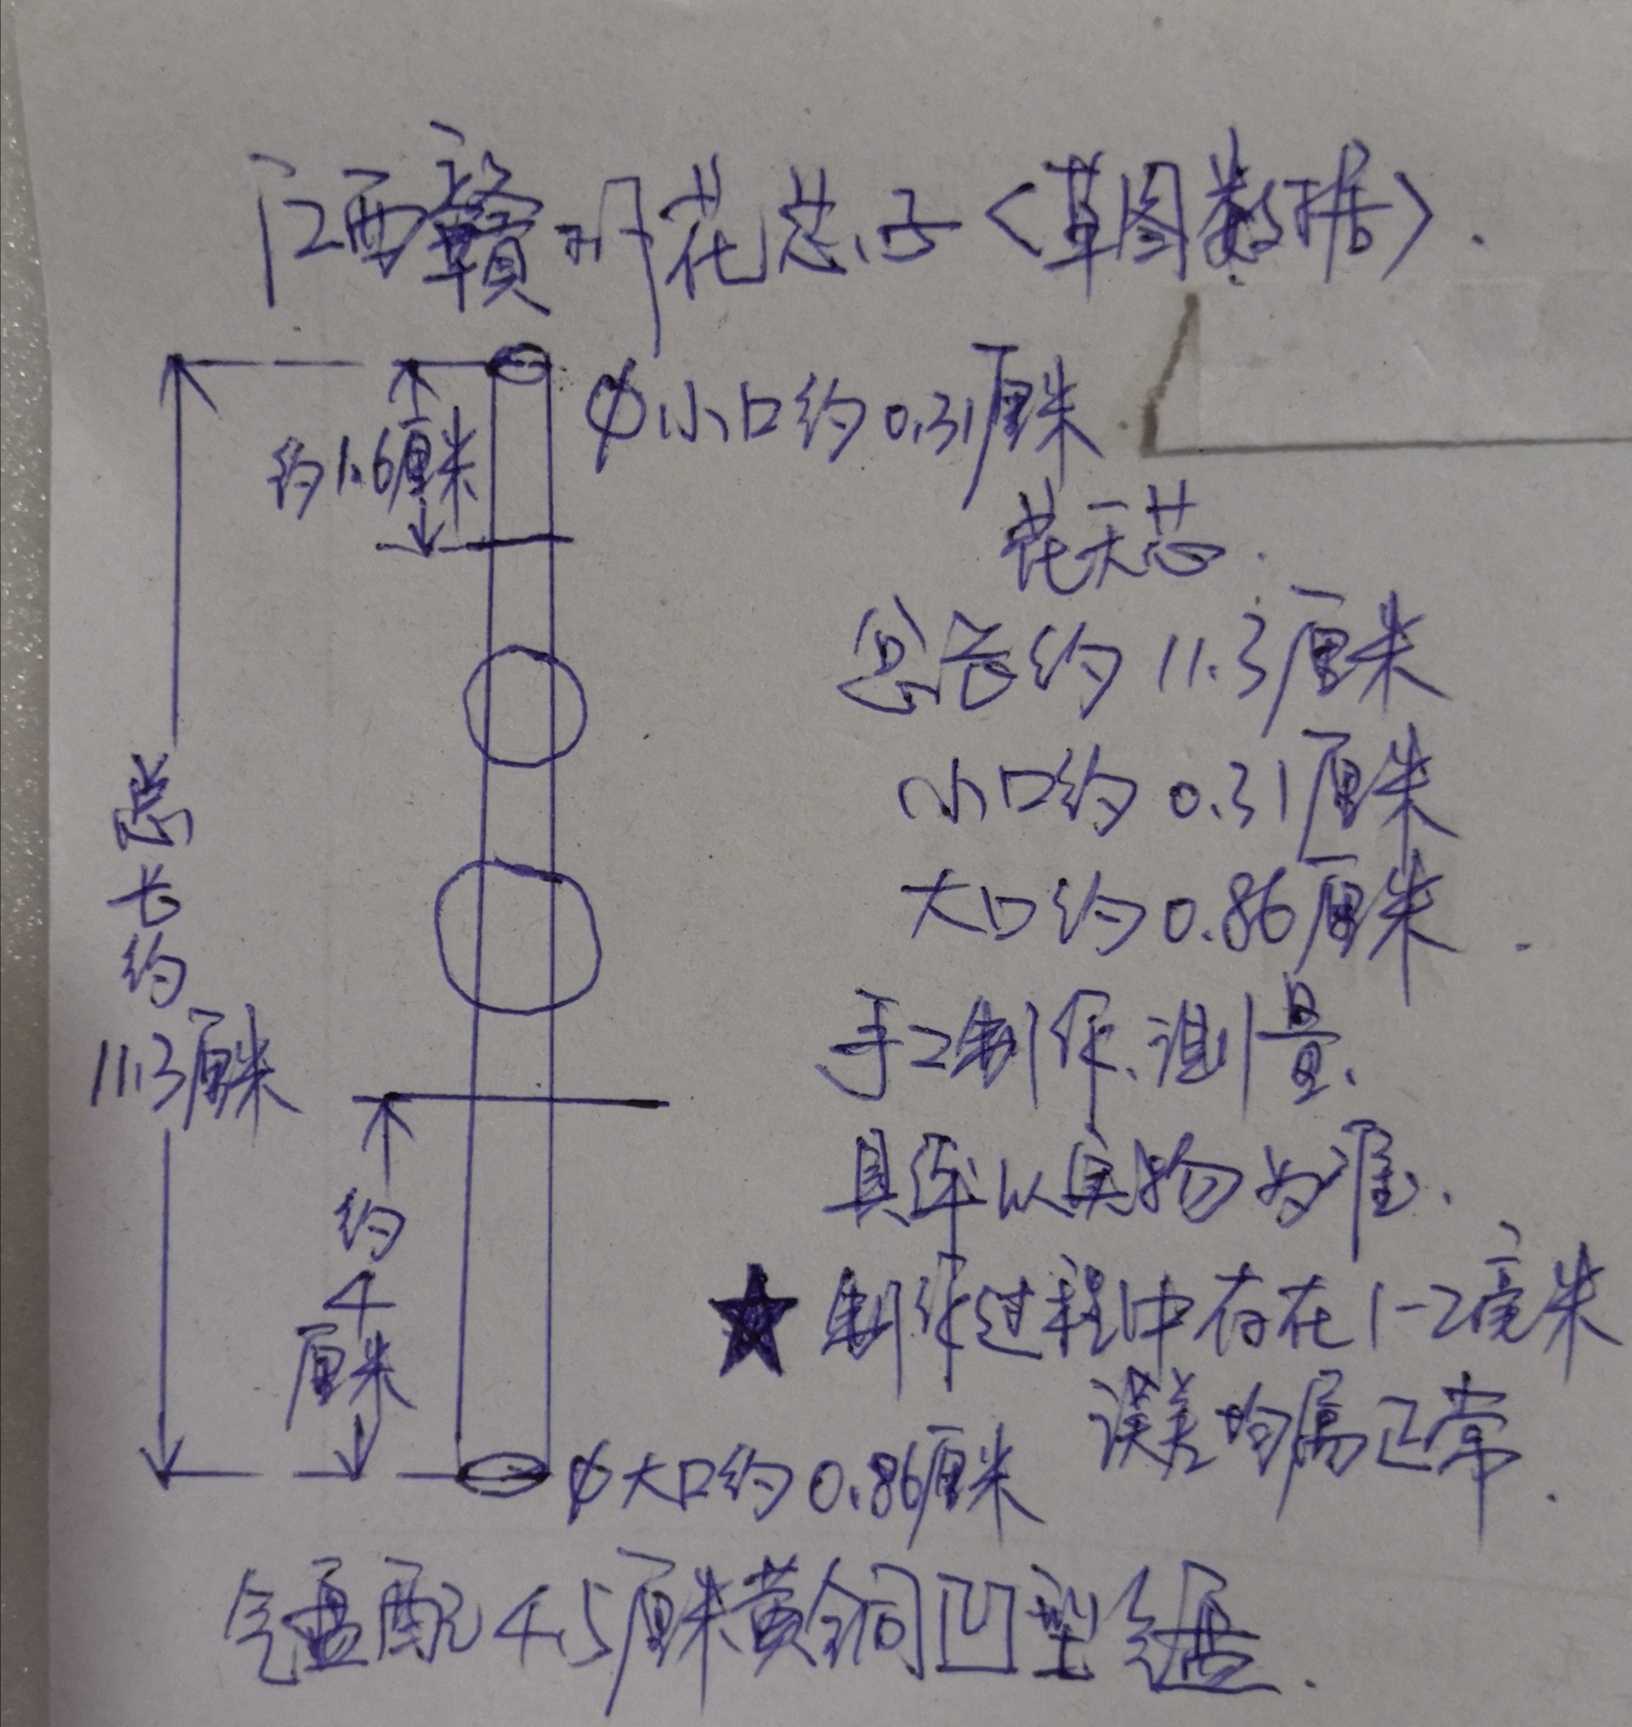 江西赣州花芯子<草图数据>.
φ小口约0.31厘米
约1.6厘米
花天芯.
总长约11.3厘米
小口约0.31厘米
大口约0.86厘米.
手工制作、测量、
具体以实物为准、
★制作过程中存在1-2毫米
误差均属正常.
总长约
11.3厘米
约4厘米
φ大口约0.86厘米
气盘配4.5厘米黄铜凹型气盘.